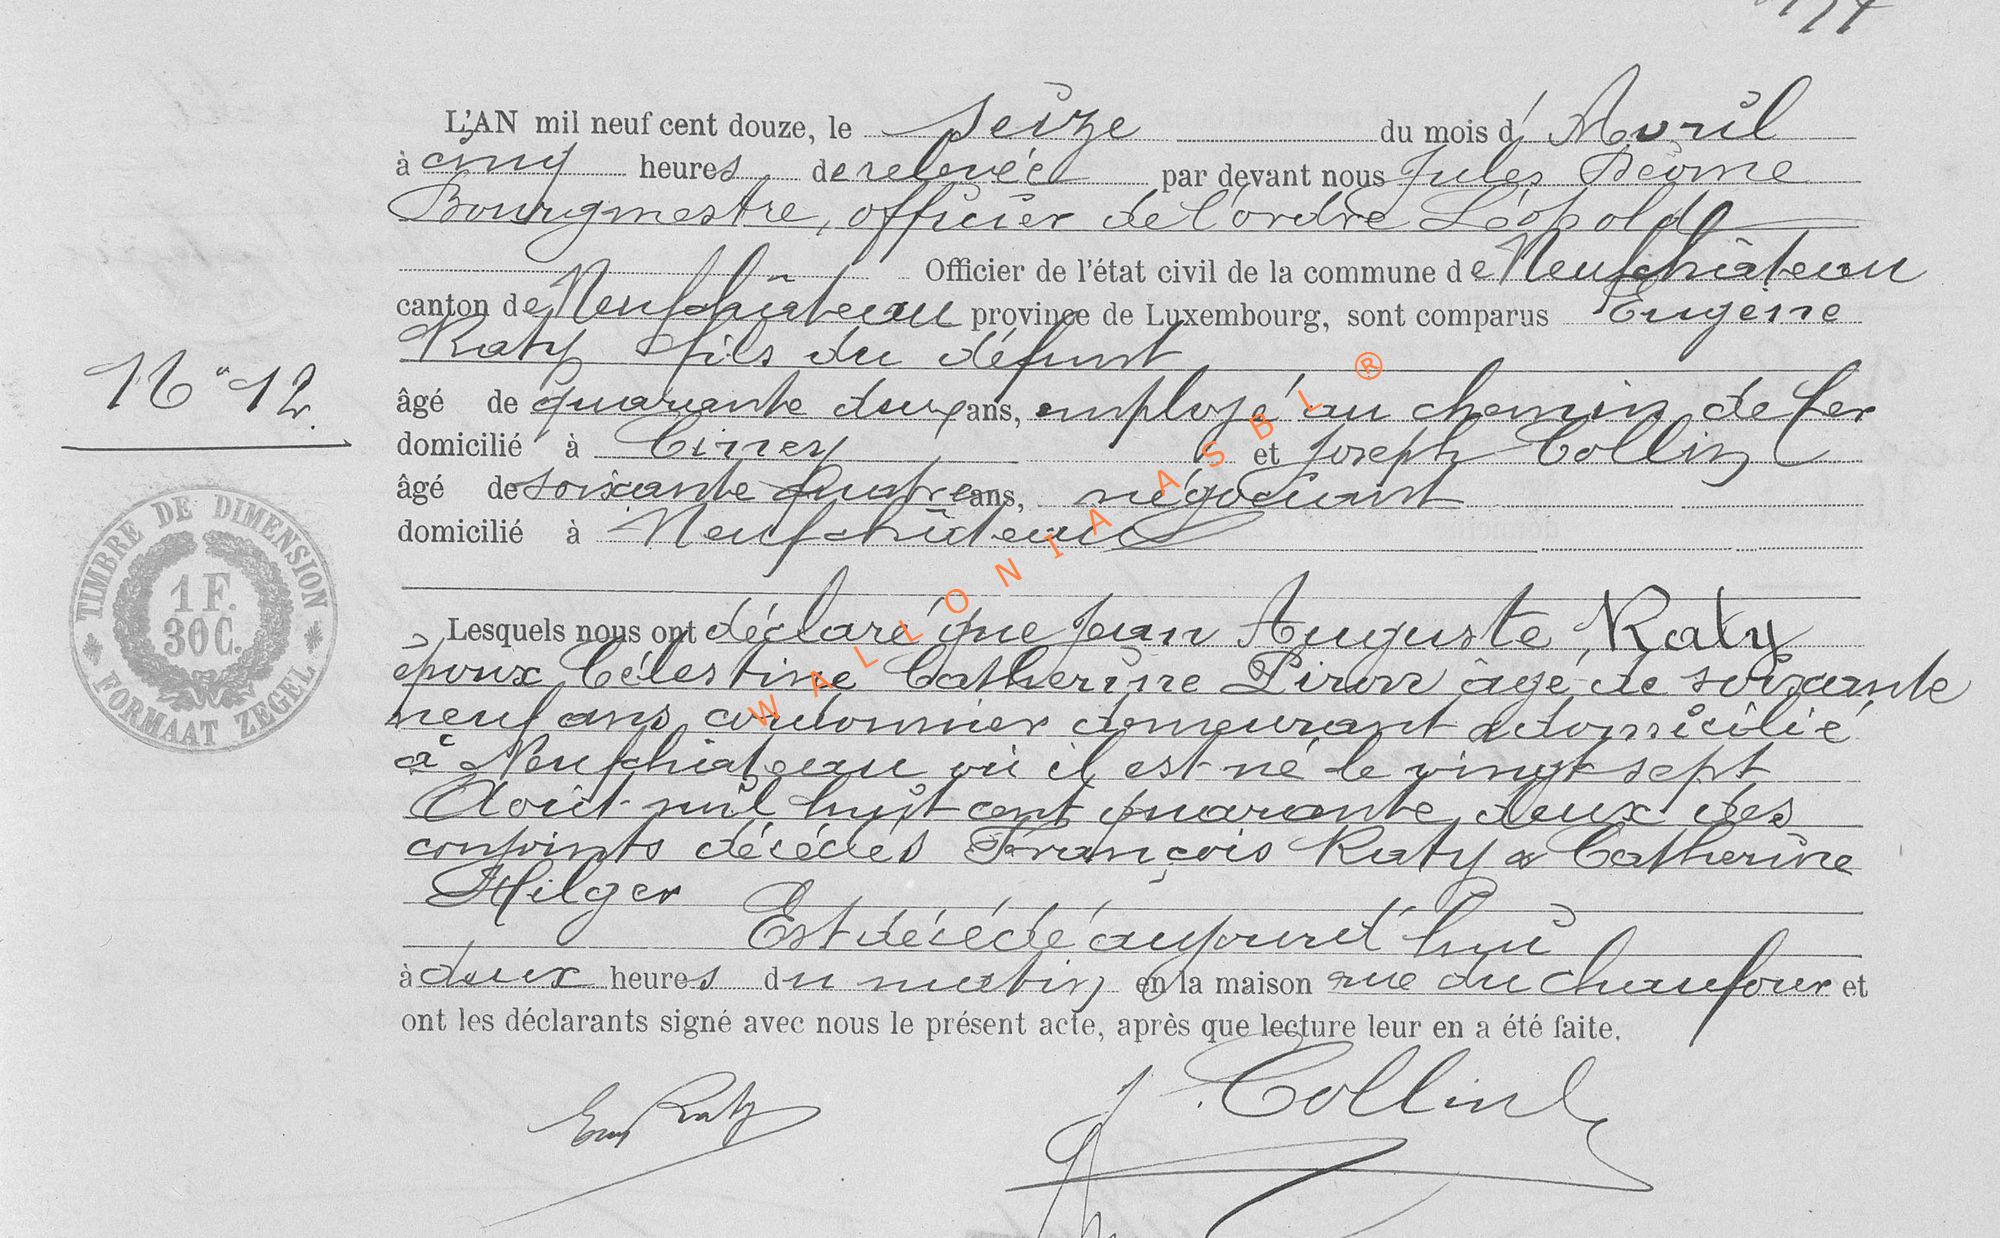 L'AN mil neuf cent douze, le seize du mois d'Avril
à cinq heures de relevée par devant nous Jules
Bourgmestre, officier de l'ordre Léopold
Officier de l'état civil de la commune de Neufchâteau
canton de Neufchâteau province de Luxembourg, sont comparus Eugène
Raty fils du défunt
N° 12.
âgé de quarante deux ans, employé au chemin de fer
domicilié à Ciney et Joseph Collin
âgé de soixante quatre ans, négociant
domicilié à Neufchâteau
TIMBRE DE DIMENSION
1 F.
30 C.
FORMAAT ZEGEL
Lesquels nous ont déclaré que Jean Auguste Raty
époux Célestine Catherine Piron âgé de soixante
neuf ans cordonnier demeurant & domicilié
à Neufchâteau où il est né le vingt sept
Août mil huit cent quarante deux des
conjoints décédés François Raty & Catherine
Hilger
Est décédé aujourd'hui
à deux heures du matin en la maison rue du Chaufour et
ont les déclarants signé avec nous le présent acte, après que lecture leur en a été faite.
Eug Raty
J. Collin
WALLONIA ASBL ®